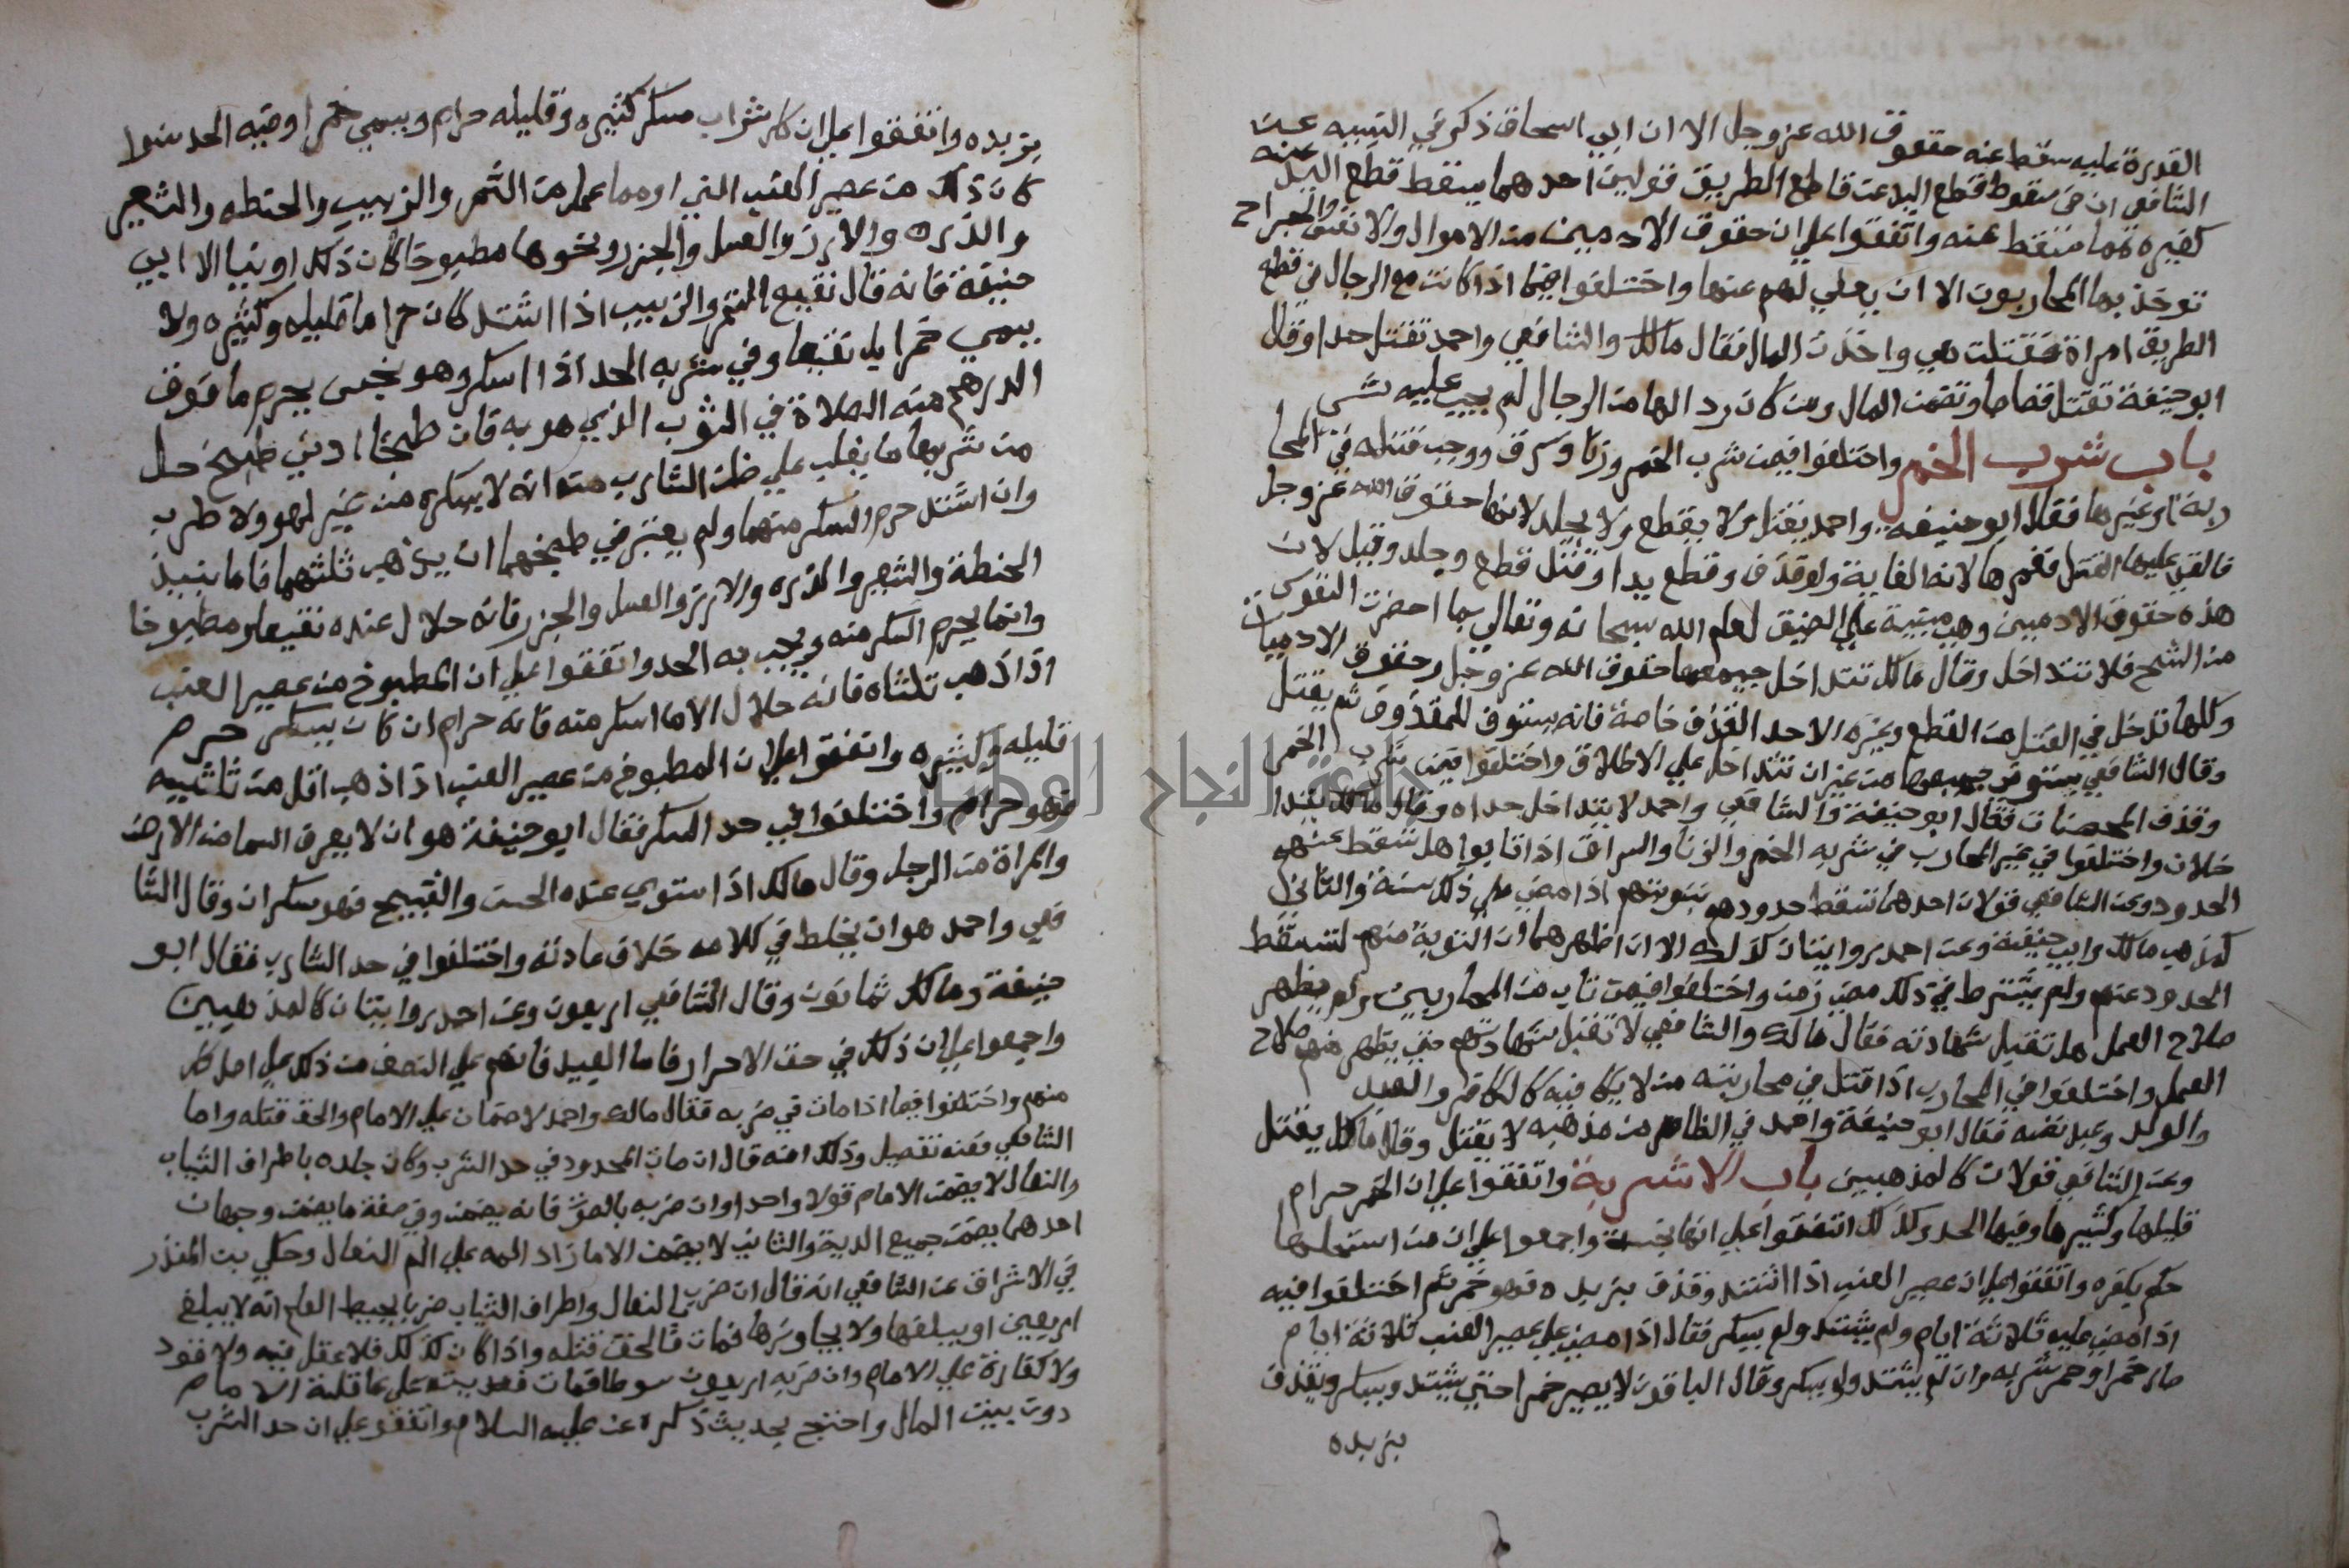 القدرة عليه سقط عنه حقوق الله عز وجل الا ان ابي اسحاق ذكر في التنبيه عن
الشافعي ان في سقوط قطع اليد عن قاطع الطريق قولين احدهما يسقط قطع اليد عنه
كغيره مما سقط عنه واتفقوا علي ان حقوق الادميين من الاموال والانفس والجراح
توخذ بها المحاربون الا ان يعفي لهم عنها واختلفوا فيما اذا كانت مع الرجال في قطع
الطريق امراة فقتلت هي واخذت المال فقال مالك والشافعي واحمد تقتل حدا وقال
ابو حنيفة تقتل قصاصا وتضمن المال ومن كان رد الها من الرجال لم يجب عليه شي
باب شرب الخمر واختلفوا فيمن شرب الخمر وزنا وسرق ووجب قتله في المحا
ربة او غيرها فقال ابو حنيفه واحمد يقتل ولا يقطع ولا يجلد لانها حقوق الله عز وجل
فالقي عليها القتل فغمرها لانه الغاية ولو قذف وقطع يدا وقتل قطع وجلد وقتل لان
هذه حقوق الادميين وهي مبنية علي الضيق لعلم الله سبحانه وتعالي بما احضرت النفوس
من الشح فلا تتداخل وقال مالك تتداخل جميعها حقوق الله عز وجل وحقوق الادميات
وكلها تدخل في القتل من القطع وغيره الا حد القذف خاصة فانه يستوفي للمقذوف ثم يقتل
وقال الشافعي يستوفي جميعها من غير ان تتداخل علي الاطلاق واختلفوا فيمن شرب الخمر
وقذف المحصنات فقال ابو حنيفة والشافعي واحمد لا يتداخل حداه وقال مالك يتدا
خلان واختلفوا في غير المحارب في شربه الخمر والزنا والسراق اذا تابوا هل تسقط عنهم
الحدود وعن الشافعي قولان احدهما تسقط حدودهم بتوبتهم اذا مضي علي ذلك سنة والثاني
كمذهب مالك وابي حنيفة وعن احمد روايتان كذلك الا ان اظهرهما ان التوبة منهم تسقط
الحدود عنهم ولم يشترط في ذلك مضي زمن واختلفوا فيمن تاب من المحاربين ولم يظهر
صلاح العمل هل تقبل شهادته فقال مالك والشافعي لا تقبل شهادتهم حتي يظهر منهم صلاح
العمل واختلفوا في المحارب اذا قتل في محاربته من لا يكافيه كالكافر والعبد
والولد وعبد نفسه فقال ابو حنيفة واحمد في الظاهر من مذهبه لا يقتل وقال مالك يقتل
وعن الشافعي قولان كالمذهبين باب الاشربة واتفقوا علي ان الخمر حرام
قليلها وكثيرها وفيها الحد وكذلك اتفقوا علي انها نجسة واجمعوا علي ان من استحلها
حكم بكفره واتفقوا علي ان عصير العنب اذا اشتد وقذف بزبده فهو خمر ثم اختلفوا فيه
اذا مضي عليه ثلاثة ايام ولم يشتد ولم يسكر فقال اذا مضي علي عصير العنب ثلاثة ايام
صار خمرا وحرم شربه وان لم يشتد ولم يسكر وقال الباقون لا يصير خمرا حتي يشتد ويسكر ويقذف
بزبده
بزبده واتفقوا علي ان كل شراب مسكر كثيره وقليله حرام ويسمي خمرا وفيه الحد سوا
كان ذلك من عصير العنب الني او مما عمل من التمر والزبيب والحنطه والشعير
والذره والارز والعسل والجزر ونحوها مطبوخا كان ذلك او نيا الا ابي
حنيفة فانه قال نقيع التمر والزبيب اذا اشتد كان حراما قليله وكثيره ولا
يسمي خمرا بل نقيعا وفي شربه الحد اذا اسكر وهو نجس يحرم ما فوق
الدرهم منه الصلاة في الثوب الذي هو به فان طبخا ادني طبخ حل
من شربهما ما يغلب علي ظن الشارب منه انه لا يسكره من غير لهو ولا طرب
وان اشتد حرم السكر منهما ولم يعتبر في طبخهما ان يذهب ثلثهما فاما نبيذ
الحنطة والشعير والذره والارز والعسل والجزر فانه حلال عنده نقيعا ومطبوخا
وانما يحرم السكر منه ويجب به الحد واتفقوا علي ان المطبوخ من عصير العنب
اذا ذهب ثلثاه فانه حلال الا ما اسكر منه فانه حرام ان كان يسكر حرم
قليله وكثيره واتفقوا علي ان المطبوخ من عصير العنب اذا ذهب اقل من ثلثيه
فهو حرام واختلفوا في حد السكر فقال ابو حنيفة هو ان لا يعرف السما من الارض
والمراة من الرجل وقال مالك اذا استوي عنده الحسن والقبيح فهو سكران وقال الشا
فعي واحمد هو ان يخلط في كلامه خلاف عادته واختلفوا في حد الشارب فقال ابو
حنيفة ومالك ثمانون وقال الشافعي اربعون وعن احمد روايتان كالمذهبين
واجمعوا علي ان ذلك في حق الاحرار فاما العبيد فانهم علي النصف من ذلك علي اصل كل
منهم واختلفوا فيما اذا مات في ضربه فقال مالك واحمد لا ضمان علي الامام والحق قتله واما
الشافعي فعنه تفصيل وذلك انه قال ان مات المحدود في حد الشرب وكان جلده باطراف الثياب
والنعال لا يضمن الامام قولا واحدا وان ضربه بالسوط فانه يضمن وفي صفة ما يضمن وجهان
احدهما يضمن جميع الدية والثاني لا يضمن الا ما زاد المه علي الم النعال وحكي بن المنذر
في الاشراف عن الشافعي انه قال ان ضرب بالنعال واطراف الثياب ضربا يحيط العلم انه لا يبلغ
اربعين او يبلغها ولا يجاوزها فمات فالحق قتله واذا كان كذلك فلا عقل فيه ولا قود
ولا كفارة علي الامام وان ضربه اربعين سوطا فمات فديته علي عاقلة الامام
دون بيت المال واحتج بحديث ذكره عن عليه السلام واتفقو علي ان حد الشرب
جامعة النجاح الوطنية